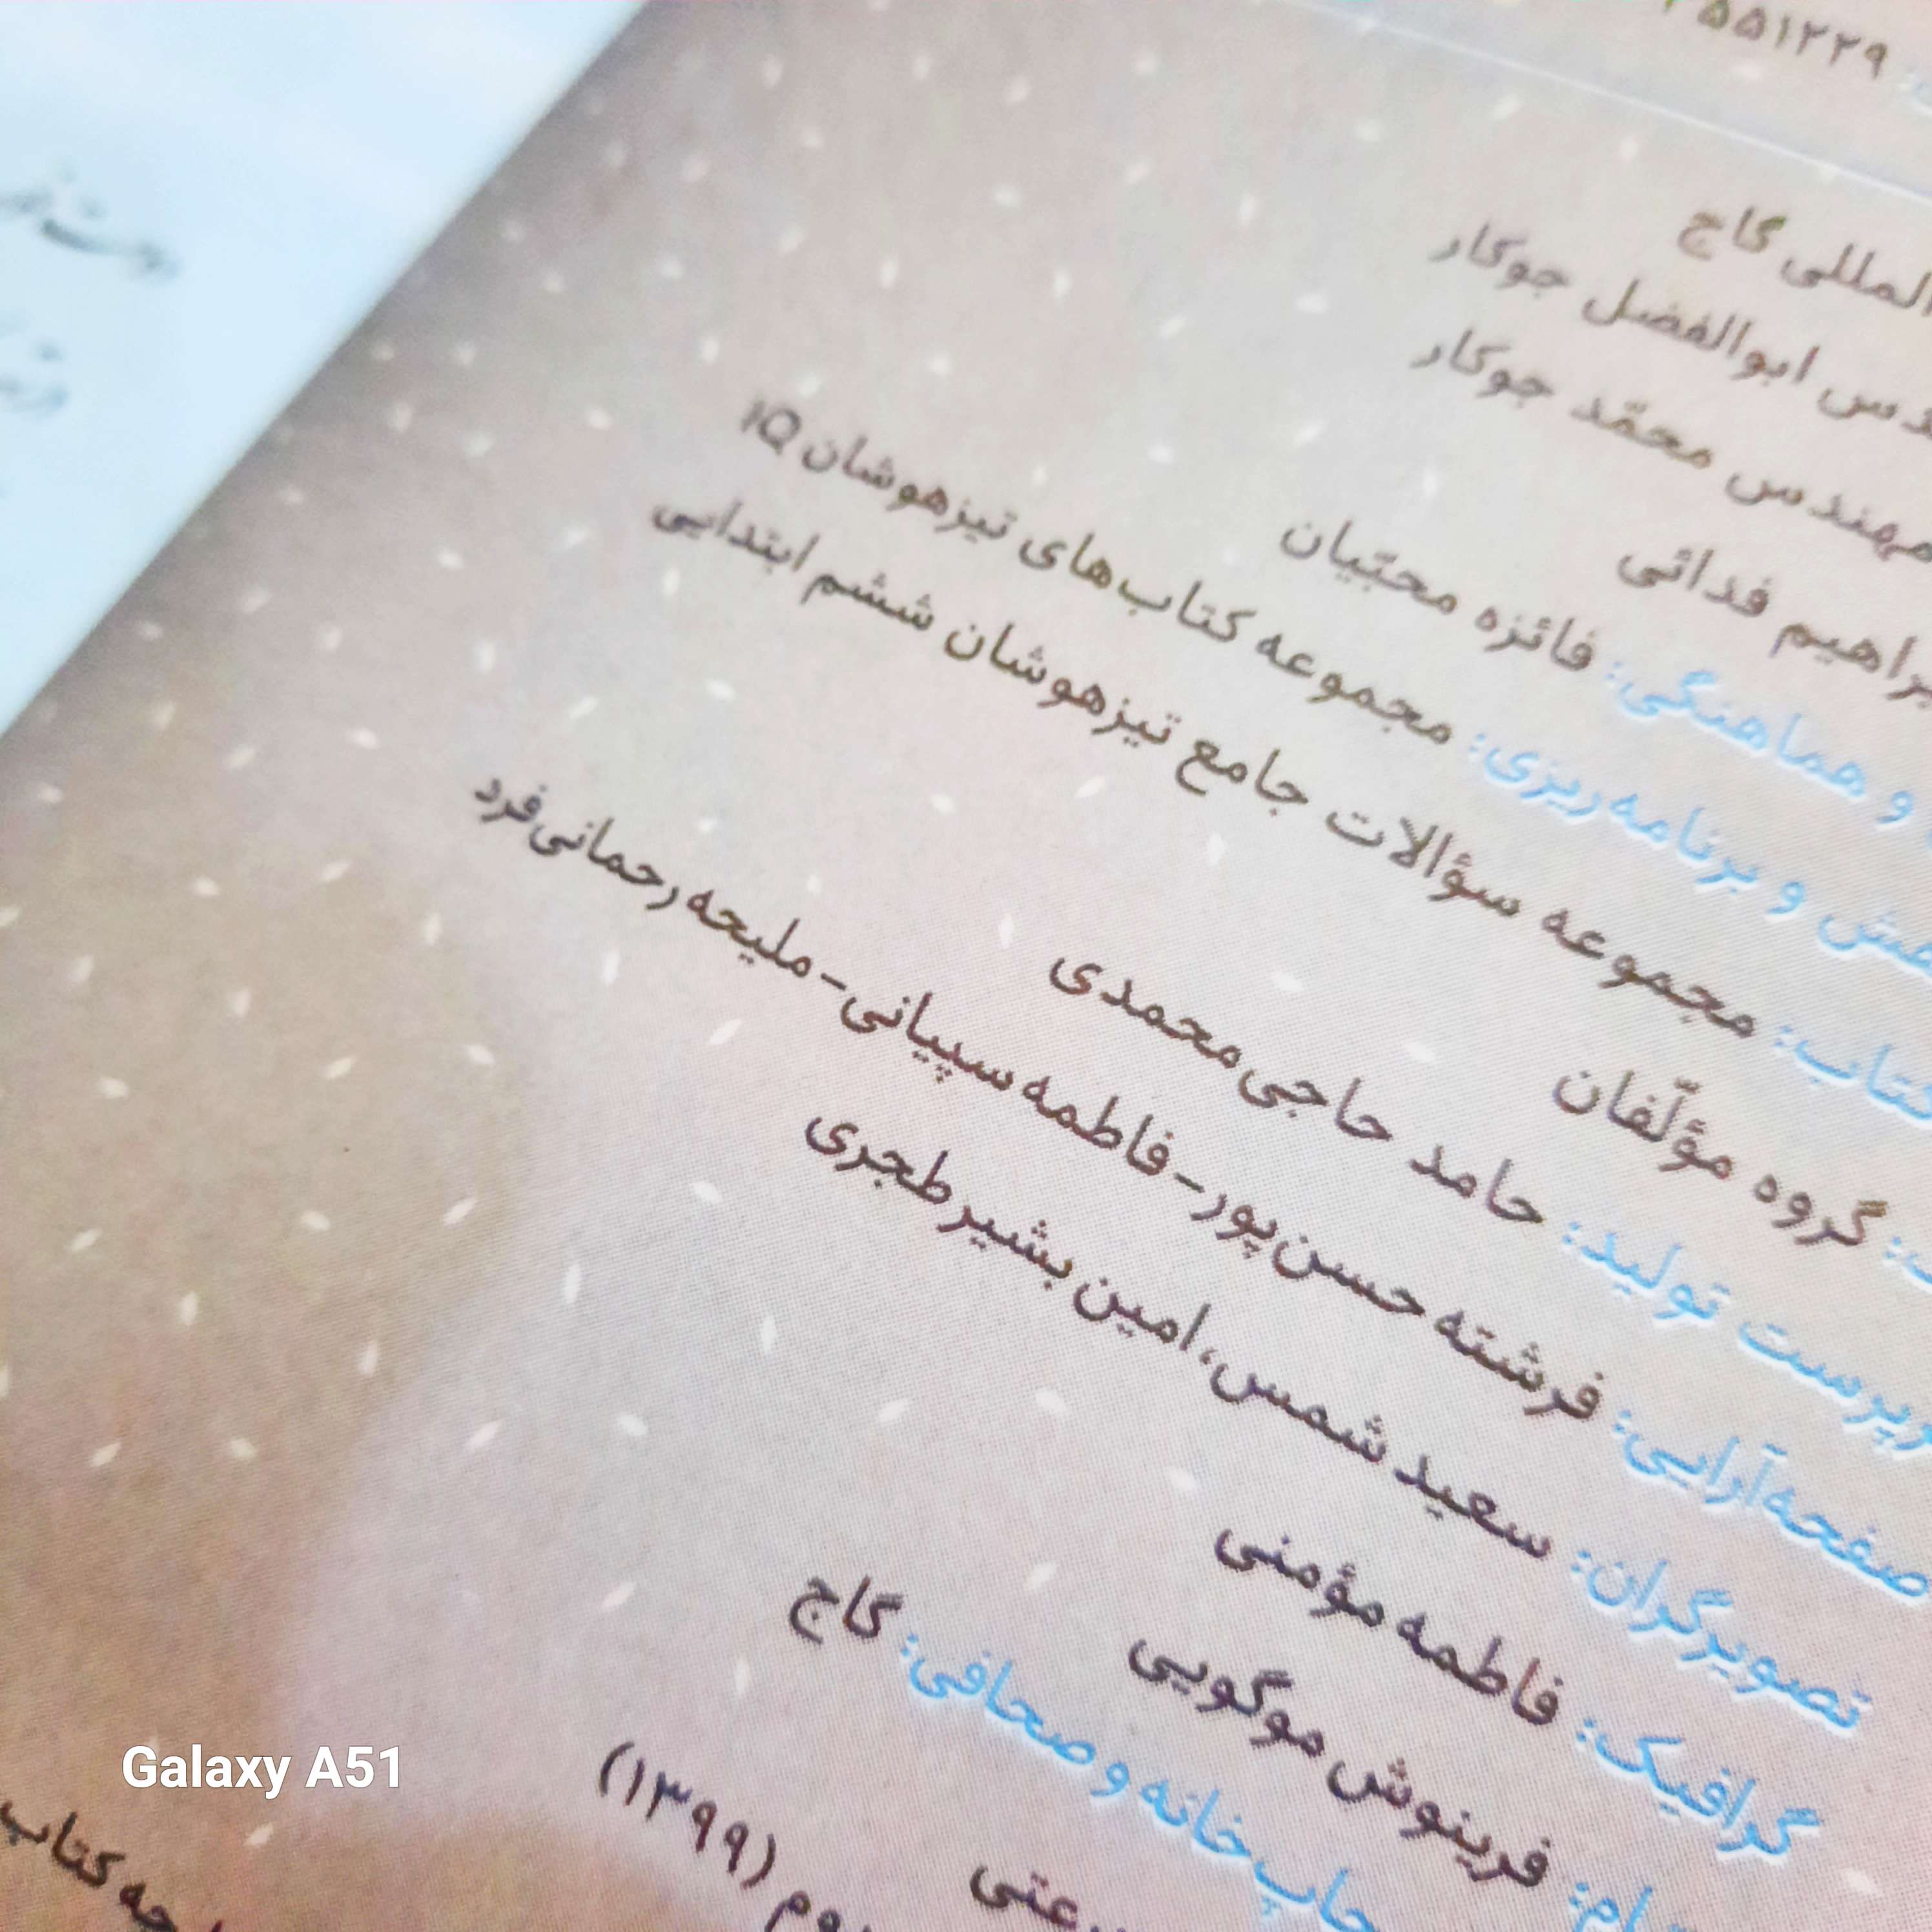 ۵۵۱۲۲۹
المللی گاج
ابوالفضل جوکار
مهندس محمّد جوکار
فدائی
و هماهنگی: فائزه محبّیان
و برنامه‌ریزی: مجموعه کتاب‌های تیزهوشان IQ
کتاب: مجموعه سؤالات جامع تیزهوشان ششم ابتدایی
گروه مؤلّفان
تولید: حامد حاجی‌محمدی
صفحه‌آرایی: فرشته حسن‌پور-فاطمه سپیانی-ملیحه رحمانی‌فرد
تصویرگران: سعید شمس، امین بشیرطجری
گرافیک: فاطمه مؤمنی
فرینوش موگویی
چاپ‌خانه و صحافی: گاج
(۱۳۹۹)
کتاب
Galaxy A51